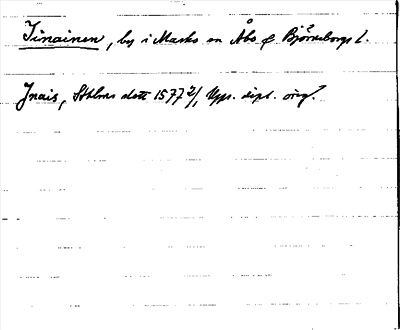 Iinainen, by i Masku sn Åbo & Björneborgs l.
Jnais, Sthlms slott 1577 2/1, Upps. dipl. orig.